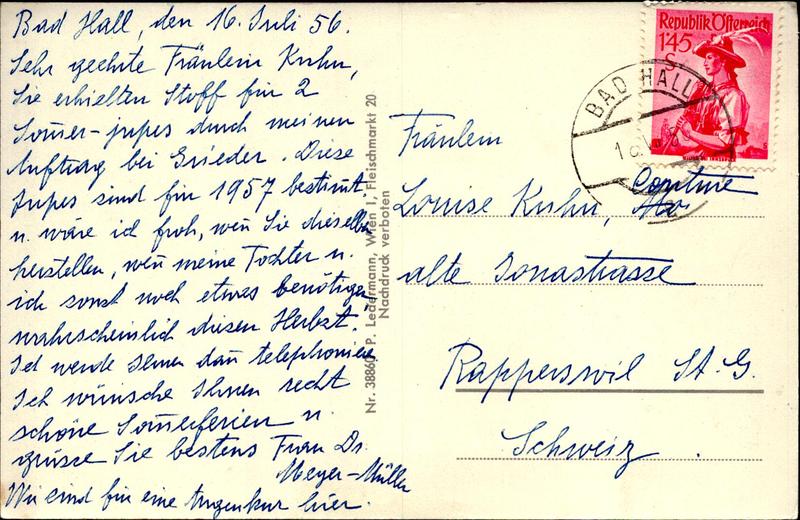 Bad Hall, den 16. Juli 56.
Sehr geehrte Fräulein Kuhn,
Sie erhielten Stoff für 2
Som̄er-jupes durch meinen
Auftrag bei Grieder. Diese
Jupes sind für 1957 bestim̄t
u. wäre ich froh, wen̄ Sie dieselben
herstellen, wen̄ meine Tochter u.
ich sonst noch etwas benötigen
wahrscheinlich diesen Herbst.
Ich werde Ihnen dan̄ telephonieren
Ich wünsche Ihnen recht
schöne Som̄erferien u.
grüsse Sie bestens Frau Dr.
Meyer-Müller
Wir sind für eine Augenkur hier.
Nr. 38860 P. Ledermann, Wien I, Fleischmarkt 20
Nachdruck verboten
Republik Österreich
1'45
S
BAD HALL
Fräulein
Couture
Louise Kuhn,
alte Jonastrasse
Rapperswil St. G.
Schweiz